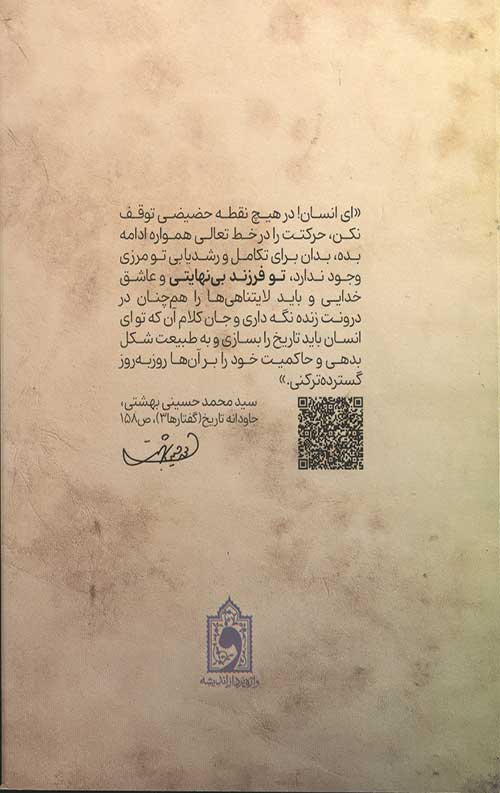 «ای انسان! در هیچ نقطه حضیضی توقف
نکن، حرکتت را در خط تعالی همواره ادامه
بده، بدان برای تکامل و رشدیابی تو مرزی
وجود ندارد، تو فرزند بی‌نهایتی و عاشق
خدایی و باید لایتناهی‌ها را هم‌چنان در
درونت زنده نگه داری و جان کلام آن که تو ای
انسان باید تاریخ را بسازی و به طبیعت شکل
بدهی و حاکمیت خود را بر آن‌ها روزبه‌روز
گسترده‌تر کنی.»
سید محمد حسینی بهشتی،
جاودانه تاریخ (گفتارها۳)، ص۱۵۸
واژه‌پرداز اندیشه